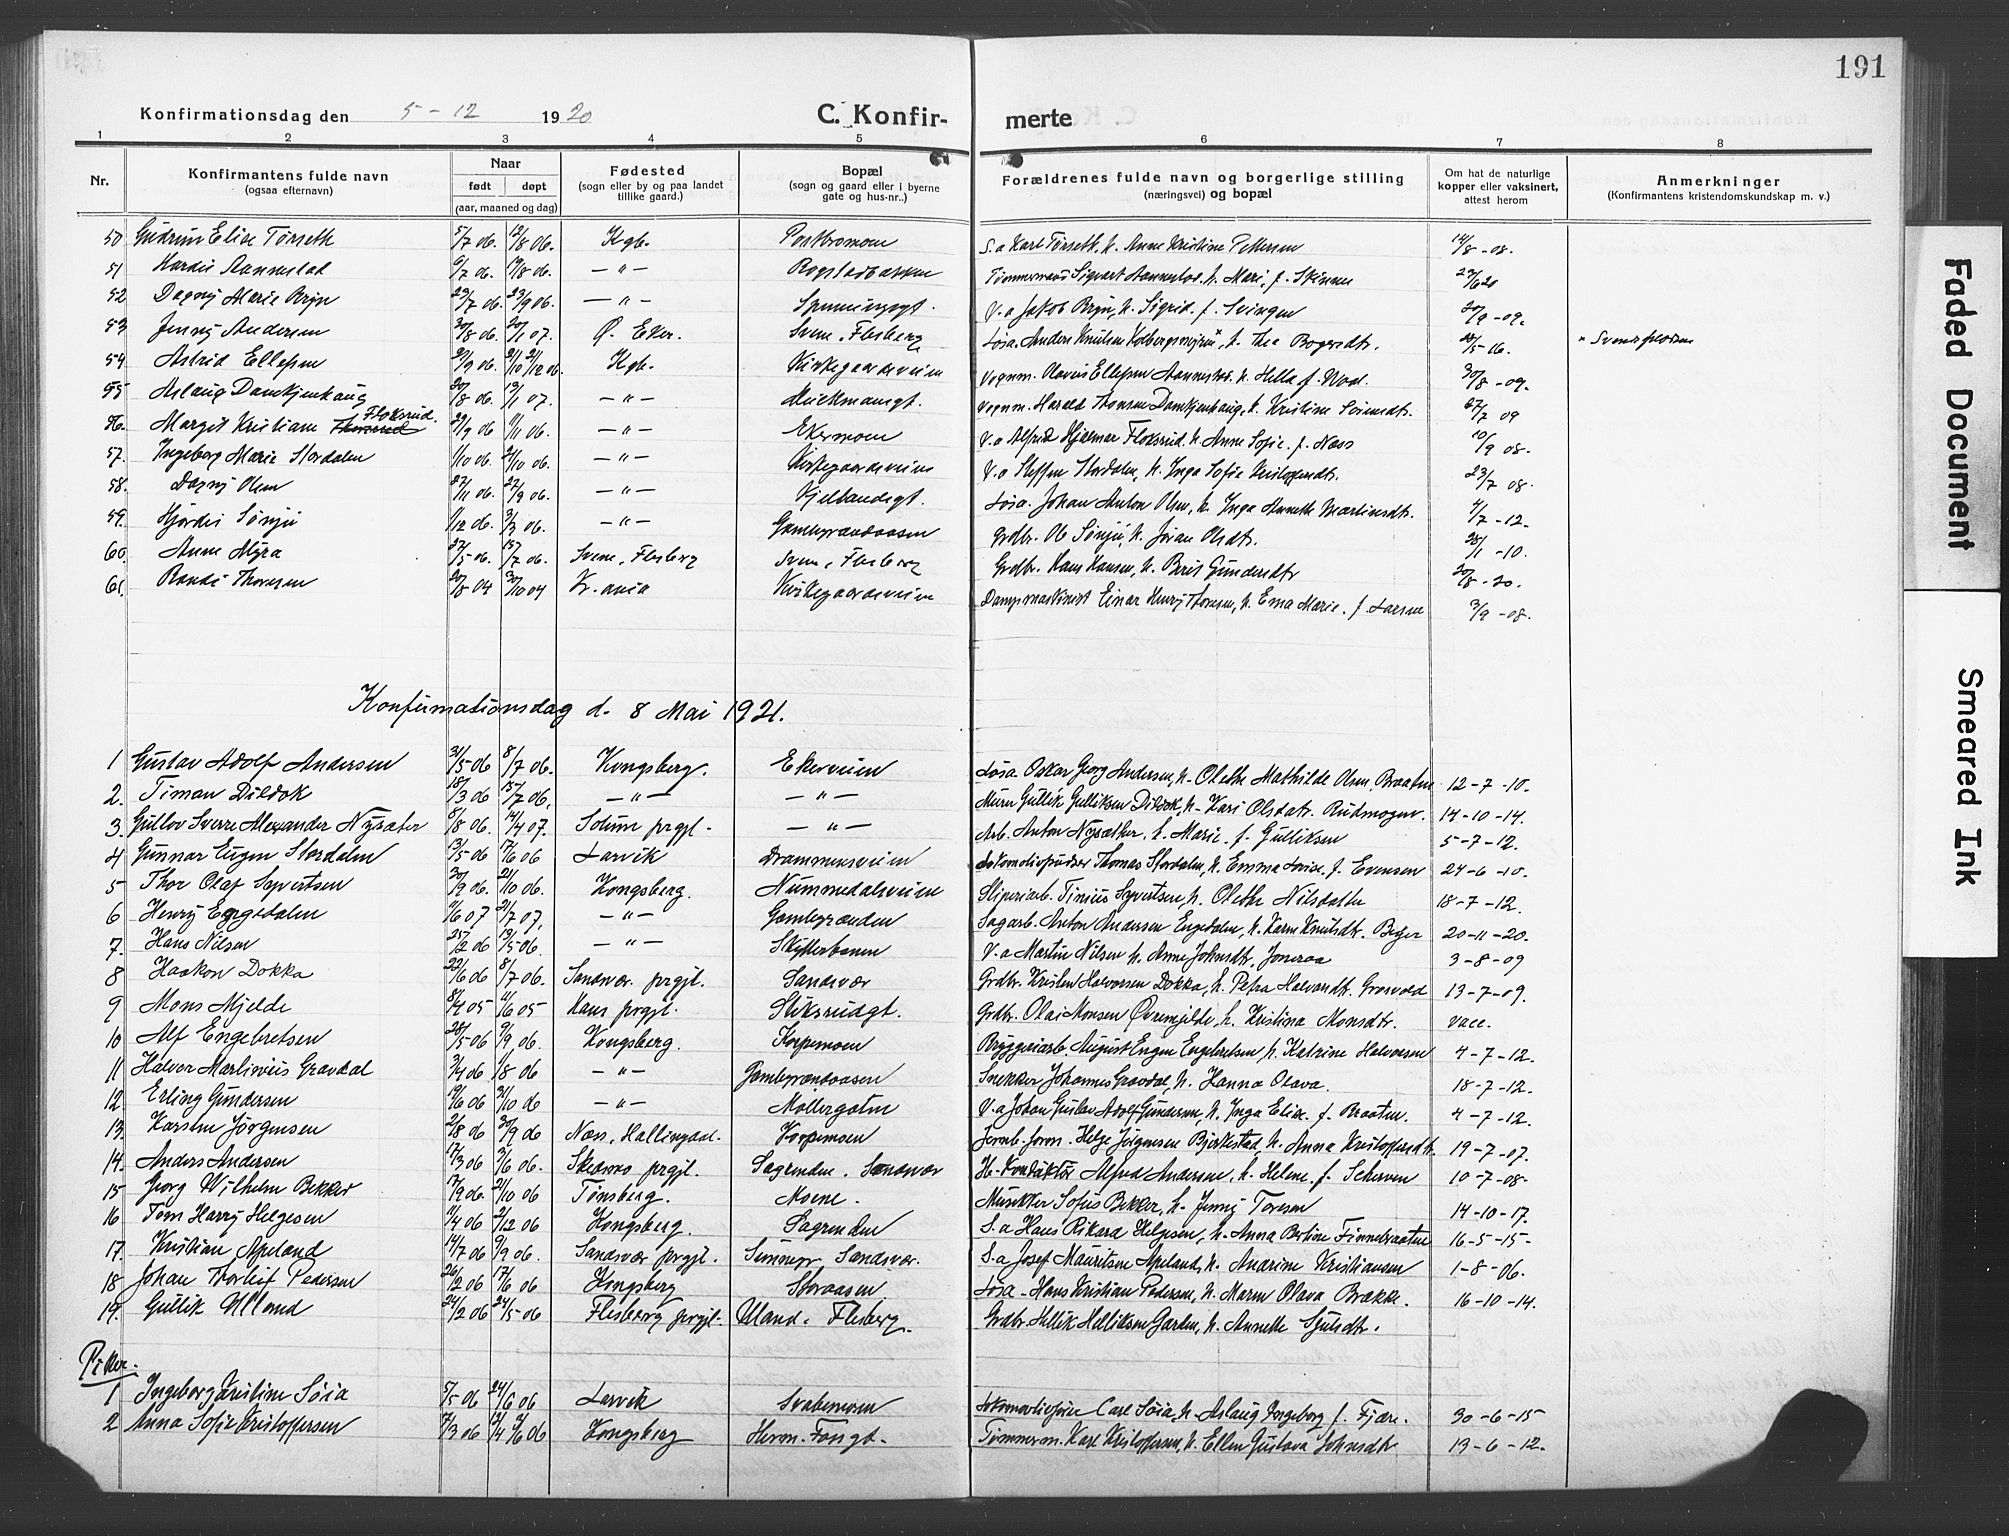 191
Konfirmationsdag den 5 - 12 1920 C. Konfirmerte
1 2 3 4 5 6 7 8
Nr. Konfirmantens fulde navn (ogsaa efternavn) Naar født døpt (aar, maaned og dag) Fødested (sogn eller by og paa landet tillike gaard.) Bopæl (sogn og gaard eller i byerne gate og hus-nr..) Forældrenes fulde navn og borgerlige stilling (næringsvei) og bopæl Om hat de naturlige kopper eller vaksinert, attest herom Anmerkninger (Konfirmantens kristendomskundskap m. v.)
50 Gudrun Elise Tørseth 5/7 06. 12/8 06. Kgb. Postbromoen S.a Karl Tørseth, h. Anne Kristine Pettersen 14/8 - 08.
51 Hardis Aannestad 6/7 06. 19/8 06. — " — Rogstadbakken Tømmermand Sigvart Aannestad, h. Mari, f. Skinnes 23/6 20
52 Dagny Marie Bryn 22/7 06. 23/9 06. — " — V.a Jakob Bryn, h. Sigrid f. Svingen 20/9 - 09.
53 Jenny Andersen 30/8 06. 20/1 07. Ø. Eker. Svene, Flesberg Løsa. Anders Knutsen h. Thea 5-16.
54 Astrid Ellefsen 21/9 06. Kgb. Kirkegaardsveien Vognm. Olavus Ellefsen Aannestad h. Hella f. 30/8 - 09.
55 Aslaug Damkjenhaug 20/8 06. 13/1 07. — " — Vognm. Harald Thorsen Damkjenhaug, h. Kristine 27/7 09
56. Margit Kristiane Floksrud. 29/9 06 1/11 06. — " — Ekermoen V.a Alfred Hjalmar Floksrud, h. Anne Sofie. f. Næss 10/9 08.
57. Ingeborg Marie Stordalen 1/10 06. 21/10 06. — " — Kirkegaardsveien V.a Steffen Stordalen, h. Inga Sofie Kristoffersdtr. 23/7 08.
58. Dagny Olsen 27/11 06. 27/9 06. — " — Løsa. Johan Anton Olsen, h. Inga Annette Martinsdtr. 4/7 - 12.
59. Hjørdis Sønju 1/12 06. 3/3 06. — " — Gamlegrændaasen Grdbr. Ole Sønju, h. Jøran Olsdtr. 28/1 - 10.
60. Anne Myra 27/5 - 06. 15/7 06. Svene, Flesberg Svene, Flesberg Grdbr. Hans Hansen, h. Berit Gundersdtr 20/8 - 20.
61. Randi Thoresen 20/8 04 30/10 04 Kr.ania Kirkegaardsveien Dampmaskinist Einar Henry Thoresen, h. Ema Marie. f. Larsen 3/9 - 08.
Konfirmationsdag d. 8 Mai 1921.
1 Gustav Adolf Andersen 31/5 06 8/7 06. Kongsberg. Ekerveien Løsa Oskar Georg Andersen, h. Olethe Mathilde Olsen Braaten 12-7-10.
2. Timan Dildok 18/3 06 15/7 06. — " — — " — Murer Gullik Gulliksen Dildok, h. Kari Olsdatr. Rudmogen. 14-10-14.
3. Gullov Sverre Alexander Nysæter 8/8 06. 14/4 07. Solum prgjl. — " — Arb. Anton Nysæther. h. Marie. f. Gulliksen 5-7-12.
4 Gunnar Eugen Stordalen 13/5 06 17/6 06 Larvik Drammensveien Lokomotivpudser Thomas Stordalen, h. Emma Lovise, f. Evensen 24-6-10.
5 Thor Olaf Syvertsen 30/9 06. 21/10 06. Kongsberg. Nummedalsveien Sliperiarb. Tinius Syvertsen, h. Olethe Nilsdatter 18-7-12.
6 Henry Engedalen 1/6 07 21/7 07. — " — Gamlegrænden Sagarb. Anton Andersen Engedalen, h. Karen Knutsdtr. 20-11-20.
7. Hans Nilsen 25/2 06 13/5 06. — " — Skytterbanen V.a Martin Nilsen h. Anne Johnsdtr. 3-8-09
8 Haakon Dokka 22/6 06 8/7 06. Sandsvær prgjl. Sandsvær Grdbr. Kristen Halvorsen Dokka, h. Petra Halvorsdtr. Grosvold 13-7-09.
9 Mons Mjelde 8/4 05 11/6 05 Haus prgjl. Sliksrudgt. Grdbr. Olai Monsen Øvremjelde, h. Kristina Monsdtr. vacc.
10 Alf Engebretsen 20/5 06 9/9 06. Kongsberg. Korpemoen Bryggeriarb. August Eugen Engebretsen h. Katrine Halvorsen 4-7-12.
11 Halvor Martinius Gravdal 3/4 06 1/8 06 — " — Gamlegrændaasen Snekker Johannes Gravdal, h. Hanna Olava. 18-7-12.
12 Erling Gundersen 12/6 06 21/10 06 — " — Møllergaten V.a Johan Gustav Adolf Gundersen, h. Inga Elise. f. Braaten. 4-7-12.
13. Karsten Jørgensen 2/8 06 30/9 06 Næss, Hallingdal. Korpemoen Jernb.form. Helge Jørgensen Bjerkestad, h. Anna Kristoffersdtr. 19-7-07.
14. Anders Andersen 17/3 06 3/6 06. Skedsmo prgjl. Sagrenden. Sandsvær H-Konduktør Alfred Andersen, h. Helene. f. Scherven 10-7-08-
15 Georg Wilhelm Bekker 17/9 06. 21/10 06 Tønsberg. Moene. Musiker Sofus Bekker, h. Jenny Toresen 14-10-17.
16 Tom Harry Helgesen 11/4 06 2/12 06 Kongsberg. Sagrenden S.a Hans Rikard Helgesen, h. Anna Bertine Finnebraaten 16-5-15-
17. Kristian Apeland 14/7 06 9/9 06. Sandsvær prgjl. Sandsvær. S.a Josef Mauritsen Apeland, h. Andrine Kristiansen 1-8-06.
18 Johan Thorleif Pedersen 26/2 06 17/6 06 Kongsberg Storaasen Løsa - Hans Kristian Pedersen, h. Maren Olava Brække. 16-10-14.
19. Gullik Ulland 24/2 06 24/5-06 Flesberg prgjl. Uland. Flesberg. Grdbr. Hellik Helliksen Garden, h. Annette
Piker.
1 Ingeborg Kristine Søia 5/5 06 24/6 06 Larvik Svabemoen Lokomotivfører Carl Søia, h. Aslaug Ingeborg f. Fjære. 30-6-15
2 Anna Sofie Kristoffersen 7/3 06 Kongsberg Tømmerm. Karl Kristoffersen, h. Ellen Gustava Johnsdtr 13-6-12.
Faded Document
Smeared Ink